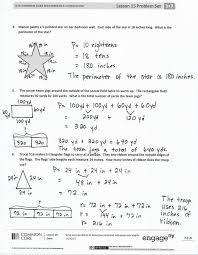 Lesson 15 Problem Set 3•7
4. Marion paints a 5-pointed star on her bedroom wall. Each side of the star is 18 inches long. What is the
perimeter of the star?
P= 10 eighteens
= 18 tens
= 180 inches
The perimeter of the star is 180 inches.
5. The soccer team jogs around the outside of the soccer field twice to warm up. The rectangular field
measures 60 yards by 100 yards. What is the total number of yards the team jogs?
100yd
60yd
60yd
100yd
P= 100yd + 60yd + 100yd + 60yd
= 200yd + 120yd
= 320yd
The team jogs a total of 640 yards.
6. Troop 516 makes 3 triangular flags to carry at a parade. They sew ribbon around the outside edges of
the flags. The flags' side lengths each measure 24 inches. How many inches of ribbon does the troop
use?
24 in
24 in
P= 24 in + 24 in + 24 in
= 72 in
72 in
72 in
72 in
72 in + 72 in + 72 in
= 216 in
The troop
uses 216
inches of
ribbon.
COMMON
CORE
engageny